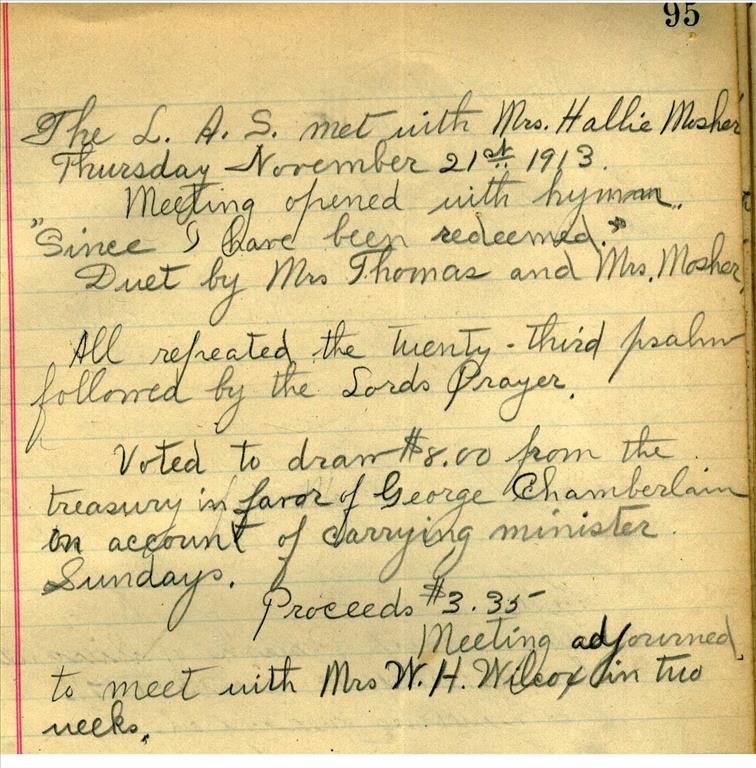 95
The L. A. S. met with Mrs. Hallie Mosher
Thursday November 21st 1913.
Meeting opened with hymn.
"Since I have been redeemed."
Duet by Mrs Thomas and Mrs. Mosher.
All repeated the twenty-third psalm
followed by the Lords Prayer.
Voted to draw $8.00 from the
treasury in favor of George Chamberlain
on account of carrying minister
Sundays.
Proceeds $3.35
Meeting adjourned
to meet with Mrs W. H. Wilcox in two
weeks.